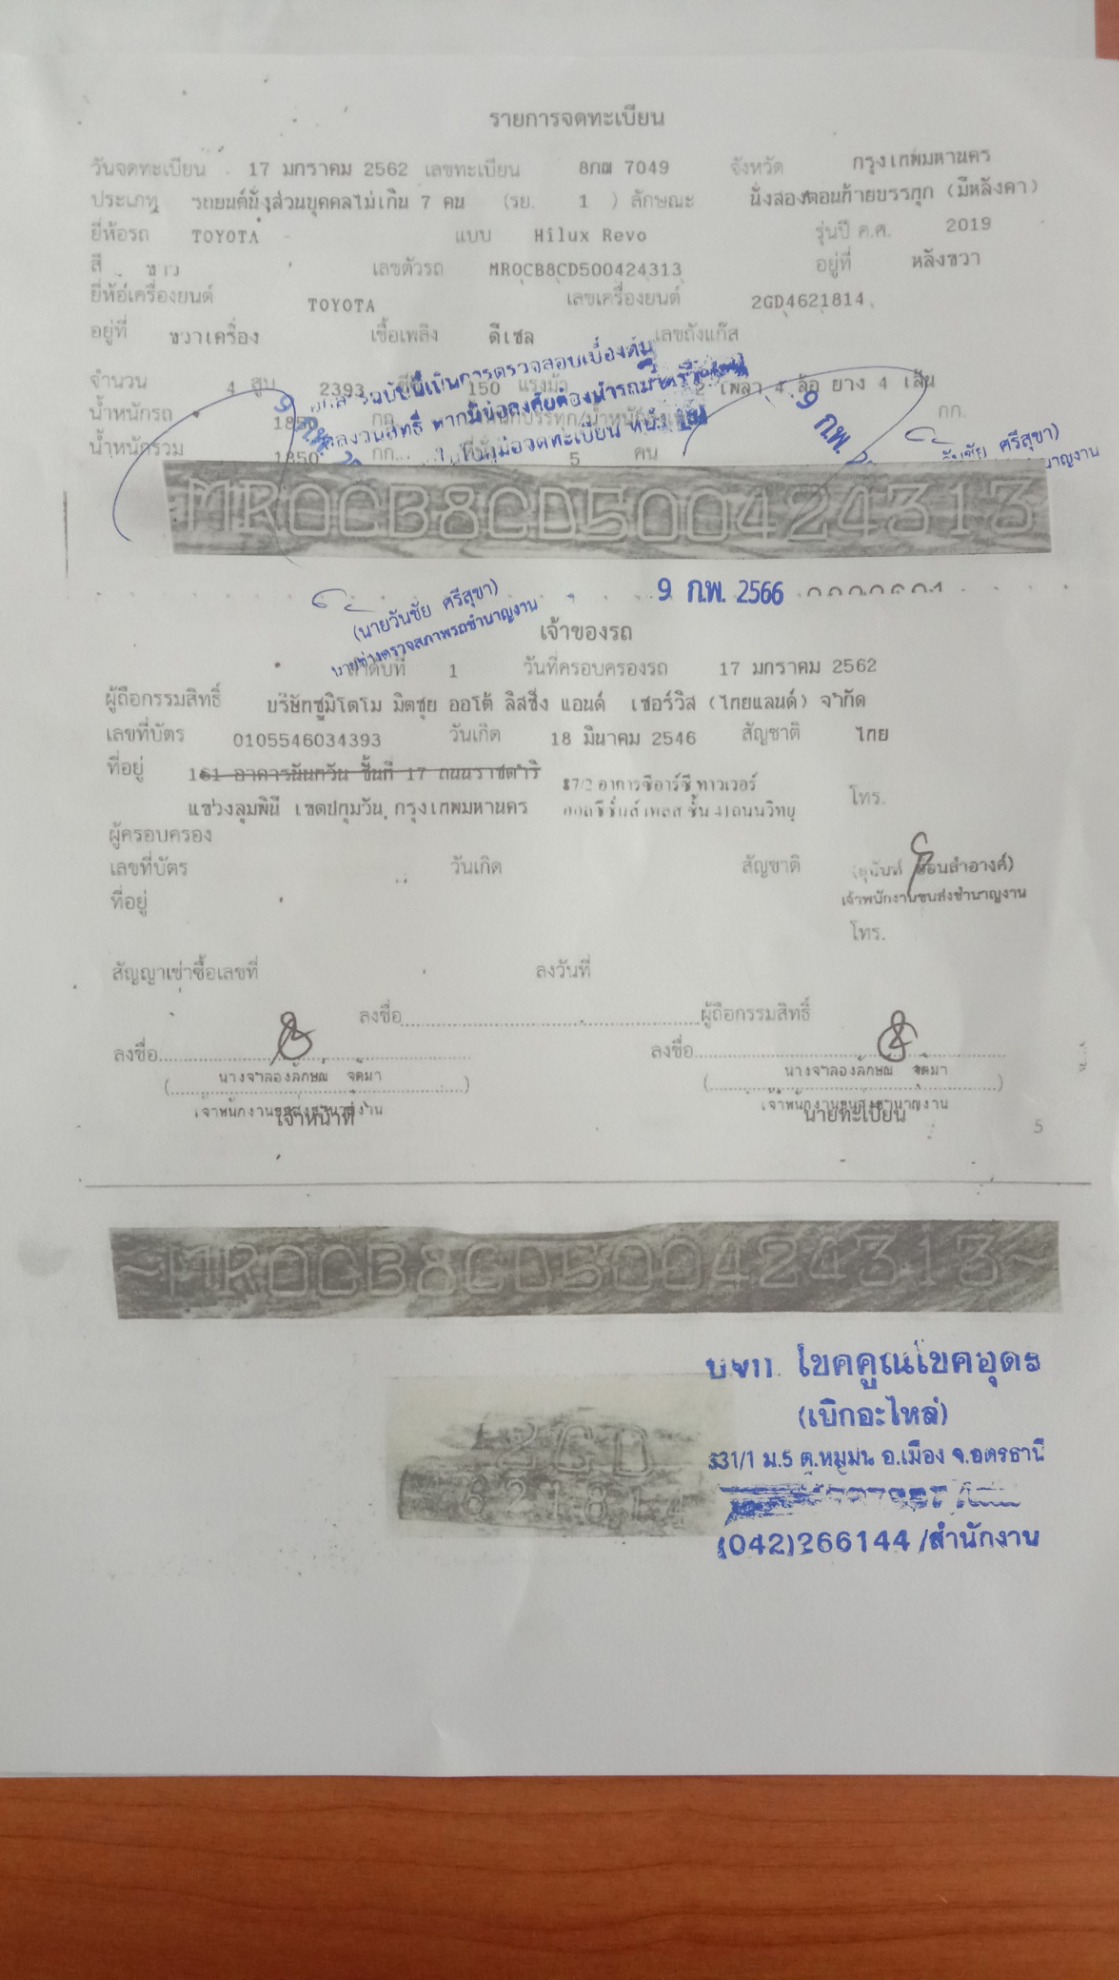 รายการจดทะเบียน
วันจดทะเบียน 17 มกราคม 2562 เลขทะเบียน 8กฒ 7049 จังหวัด กรุงเทพมหานคร
ประเภท รถยนต์นั่งส่วนบุคคลไม่เกิน 7 คน (รย. 1 ) ลักษณะ นั่งสองตอนท้ายบรรทุก (มีหลังคา)
ยี่ห้อรถ TOYOTA แบบ Hilux Revo รุ่นปี ค.ศ. 2019
สี ขาว เลขตัวรถ MR0CB8CD500424313 อยู่ที่ หลังขวา
ยี่ห้อเครื่องยนต์ TOYOTA เลขเครื่องยนต์ 2GD4621814
อยู่ที่ ขวาเครื่อง เชื้อเพลิง ดีเซล เลขถังแก๊ส
จำนวน 4 สูบ 2393 150 แรงม้า 2 เพลา 4 ล้อ ยาง 4 เส้น
น้ำหนักรถ 1850 กก. กก.
น้ำหนักรวม 1850 กก. 5 คน
9 ก.พ.
9 ก.พ.
วันชัย ศรีสุขา)
MR0CB8CD500424313
9 ก.พ. 2566
(นายวันชัย ศรีสุขา)
นายช่างตรวจสภาพรถชำนาญงาน
เจ้าของรถ
ลำดับที่ 1 วันที่ครอบครองรถ 17 มกราคม 2562
ผู้ถือกรรมสิทธิ์ บริษัทซูมิโตโม มิตซุย ออโต้ ลิสซิ่ง แอนด์ เซอร์วิส (ไทยแลนด์) จำกัด
เลขที่บัตร 0105546034393 วันเกิด 18 มีนาคม 2546 สัญชาติ ไทย
ที่อยู่ 161 อาคารนันทวัน ชั้นที่ 17 ถนนราชดำริ 87/2 อาคารซีอาร์ซี ทาวเวอร์
แขวงลุมพินี เขตปทุมวัน กรุงเทพมหานคร ออลซีซั่นส์ เพลส ชั้น 41 ถนนวิทยุ โทร.
ผู้ครอบครอง
เลขที่บัตร วันเกิด สัญชาติ
ที่อยู่ เจ้าพนักงานขนส่งชำนาญงาน
โทร.
สัญญาเช่าซื้อเลขที่ ลงวันที่
ลงชื่อ ผู้ถือกรรมสิทธิ์
ลงชื่อ ลงชื่อ
นางจำลองลักษณ์ จัดมา นางจำลองลักษณ์ จัดมา
เจ้าพนักงานขนส่งชำนาญงาน เจ้าพนักงานขนส่งชำนาญงาน
เจ้าหน้าที่ นายทะเบียน
5
~MR0CB8CD500424313~
2GD
โชคคูณโชคอุดร
(เบิกอะไหล่)
331/1 ม.5 ต.หมูม่น อ.เมือง จ.อุดรธานี
(042)266144 /สำนักงาน